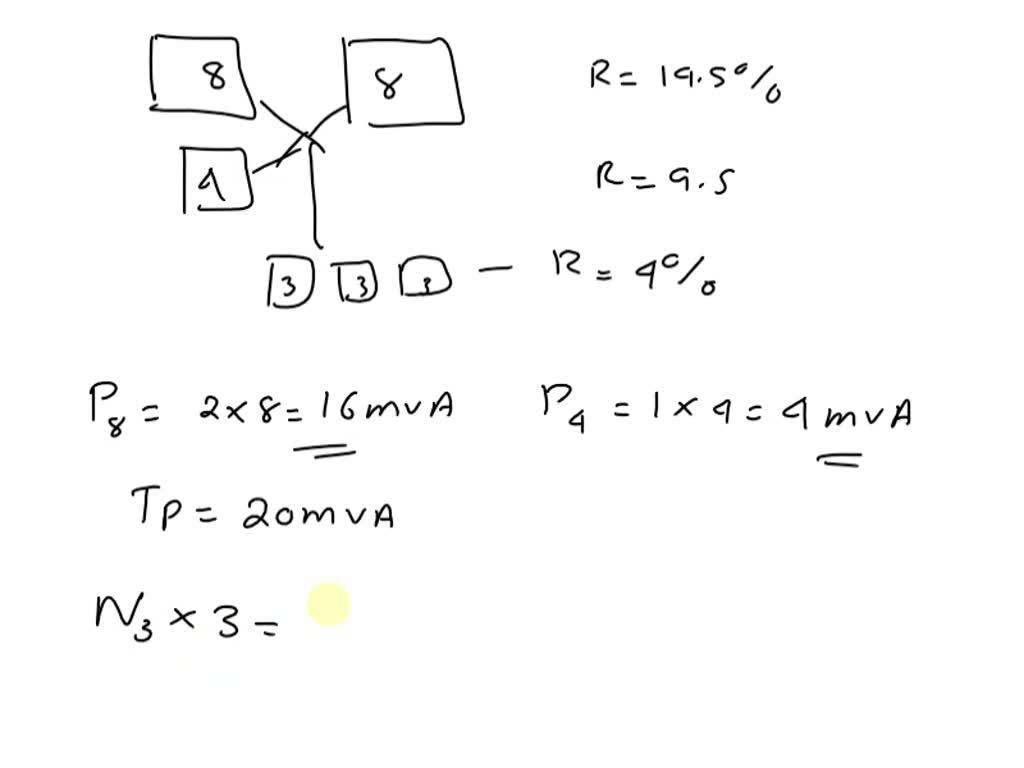 8
8
R = 19.5%
4
R = 9.5
3 3 3 – R = 4%
P8 = 2 × 8 = 16 mvA
P4 = 1 × 4 = 4 mvA
TP = 20 mvA
N3 × 3 =